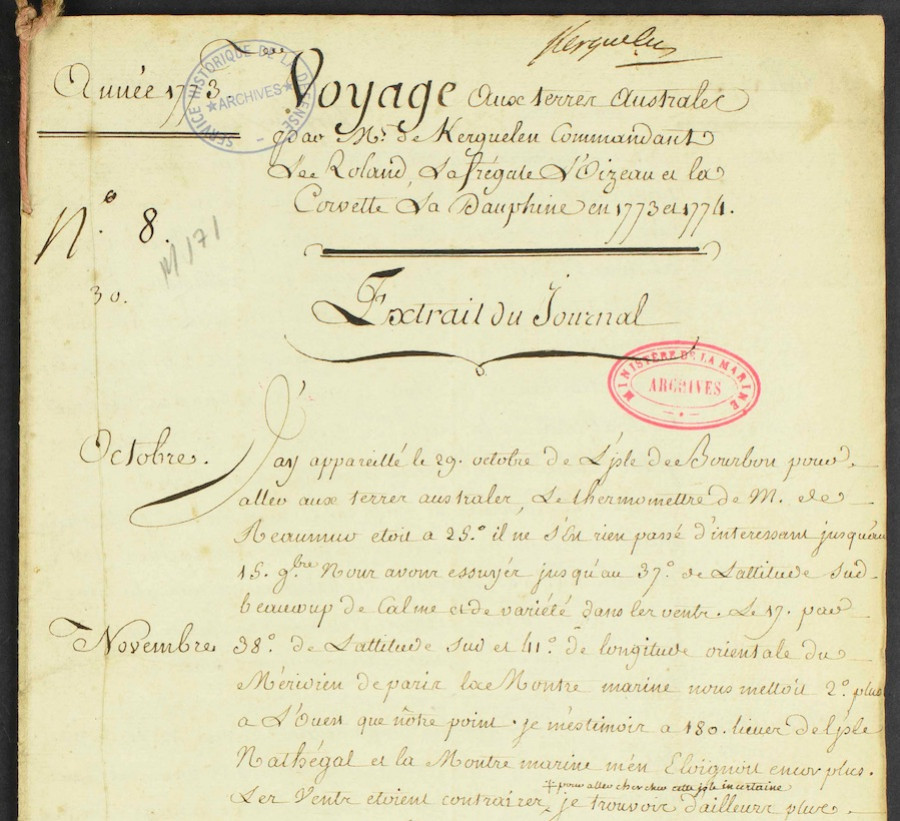 Kerguelen
Année 1773.
SERVICE HISTORIQUE DE LA DEFENSE
★ARCHIVES★
Voyage aux terres australes
par Mr. de Kerguelen Commandant
Le Roland, La frégate L'Oizeau et la
Corvette La Dauphine en 1773 et 1774.
N.° 8.
M 171
30.
Extrait du Journal
MINISTÈRE DE LA MARINE
ARCHIVES
Octobre.
J'ay appareillé le 29. octobre de L'isle de Bourbon pour
aller aux terres australes, Le thermomettre de M. de
Reaumur etoit a 25.° il ne s'est rien passé d'interessant jusqu'au
15. 9.bre Nous avons essuyés jusqu'au 37.° de Lattitude sud
beaucoup de Calme et de variété dans les vents. Le 17. par
Novembre
38.° de Lattitude sud et 41.° de longitude orientale du
Méridien de paris la Montre marine nous mettoit 2.° plus
a L'Ouest que nôtre point. je m'estimois a 180. lieues de L'isle
Nathégal et la Montre marine m'en Eloignoit encor plus.
‡ pour aller chercher cette isle incertaine
Les Vents etoient contraires ‡ je trouvois d'ailleurs